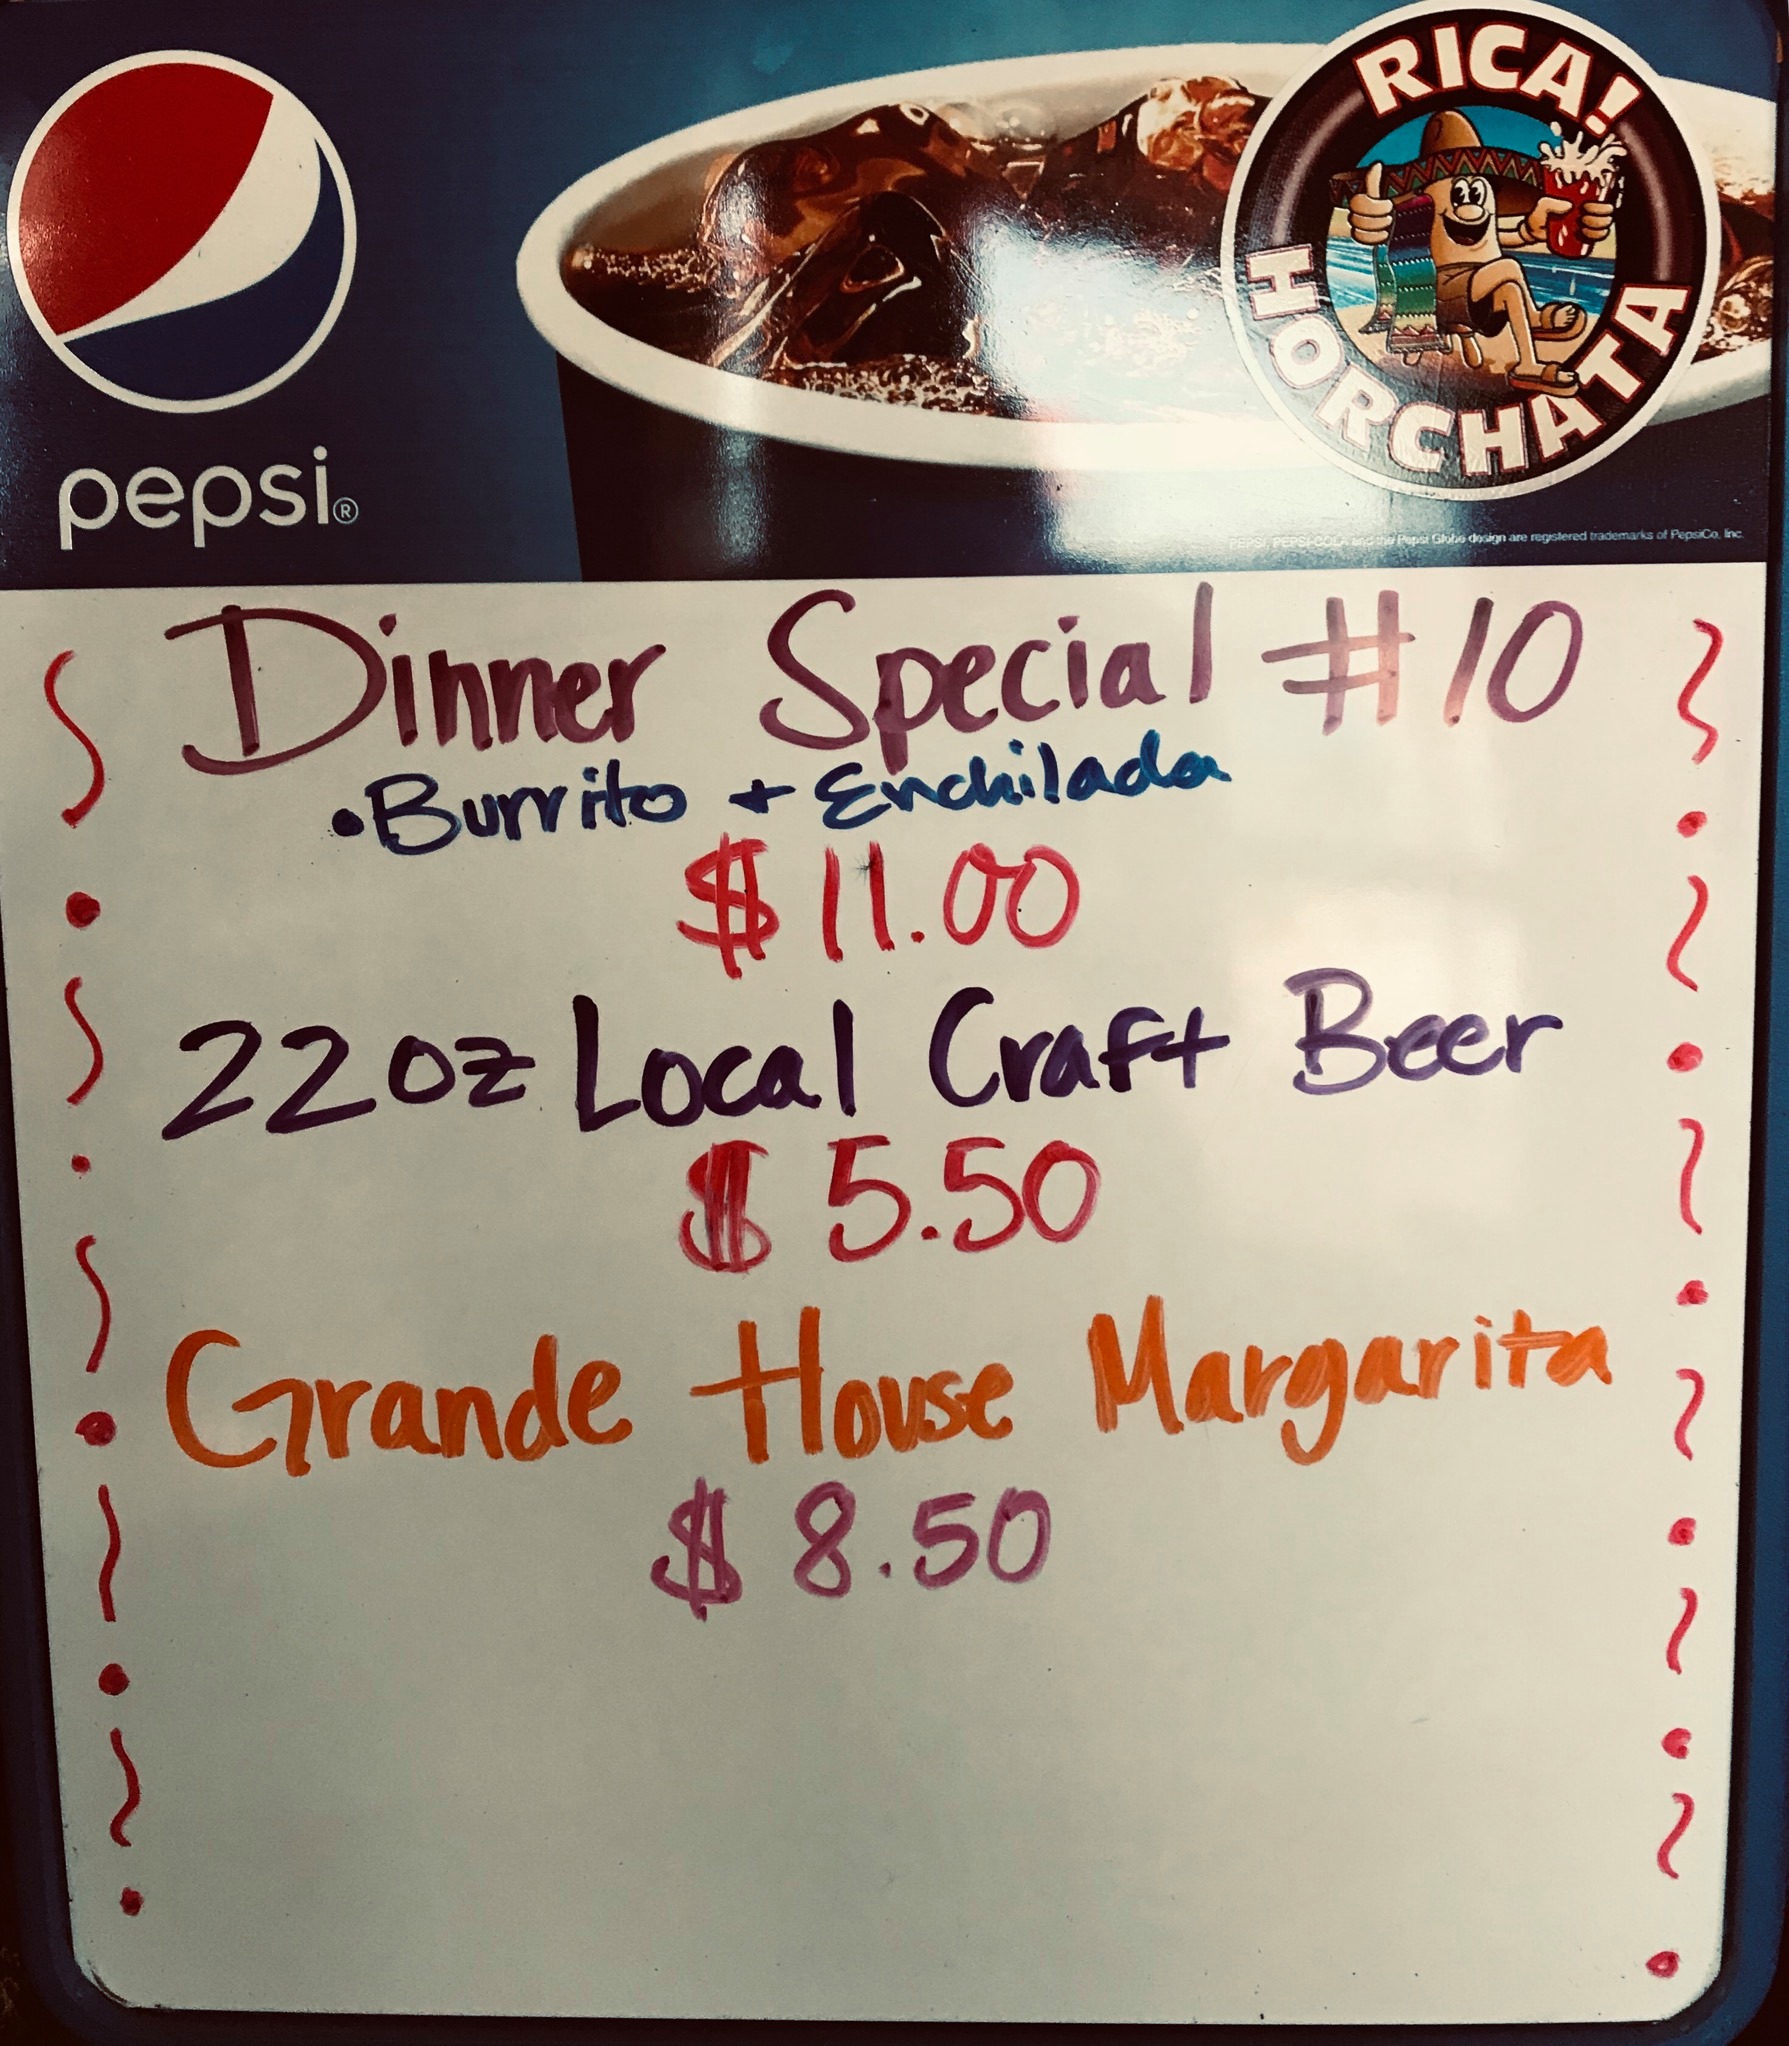 RICA!
HORCHATA
pepsi®
PEPSI, PEPSI-COLA and the Pepsi Globe design are registered trademarks of PepsiCo, Inc.
Dinner Special #10
•Burrito + Enchilada
$11.00
22oz Local Craft Beer
$5.50
Grande House Margarita
$8.50